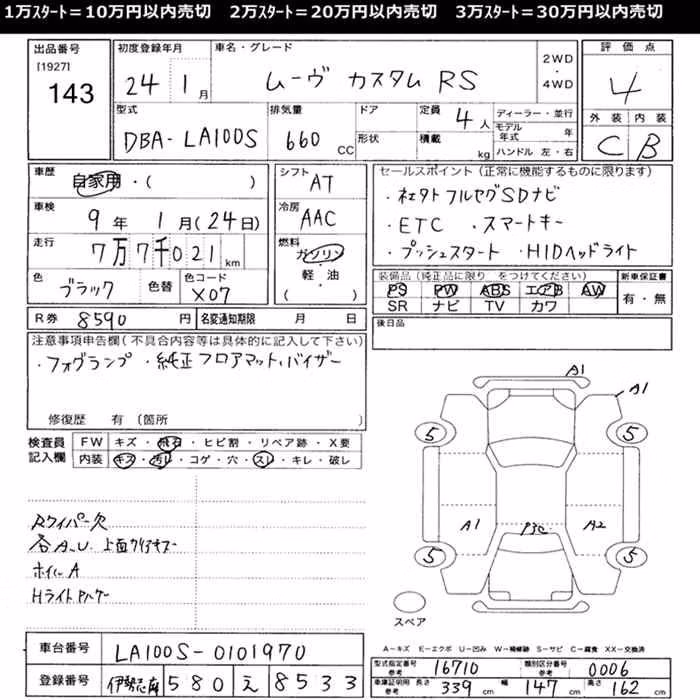 1万スタート＝10万円以内売切　2万スタート＝20万円以内売切　3万スタート＝30万円以内売切
出品番号
[1927]
143
初度登録年月
24 1月
車名・グレード
ムーヴ カスタム RS
2WD・4WD
評価点
4
型式
DBA-LA100S
排気量
660 CC
ドア
形状
定員 4人
積載 kg
ディーラー・並行
モデル年式 年
ハンドル 左・右
外装 内装
C B
車歴
自家用・( )
車検
9年 1月(24日)
走行
7万7千021km
色
ブラック
色替
色コード
X07
シフト
AT
冷房
AAC
燃料
ガソリン
軽・油
( )
セールスポイント（正常に機能するものに限ります）
・ネxタト フルセグSDナビ
・ETC ・スマートキー
・プッシュスタート ・HIDヘッドライト
装備品（純正品に限り をつけてください）
PS PW ABS エアB AW
SR ナビ TV カワ
新車保証書
有・無
R券 8590円
名変通知期限 月 日
後日品
注意事項申告欄（不具合内容等は具体的に記入して下さい）
・フォグランプ ・純正フロアマット、バイザー
修復歴 有（箇所
検査員記入欄
FW キズ・飛石・ヒビ割・リペア跡・X要
内装 キズ・汚レ・コゲ・穴・スレ・キレ・破レ
Rワイパー欠
各A.U. 上面クリアキズー
ホイルA
A1
A1
5 5
A1 P3C A2
5 5
スペア
A－キズ E－エクボ U－凹み W－補修跡 S－サビ C－腐食 XX－交換済
車台番号 LA100S-0101970
登録番号 伊勢志摩 580 え 8533
型式指定番号 参考 16710
類別区分番号 参考 0006
車庫証明用 参考 長さ 339cm 幅 147cm 高さ 162cm